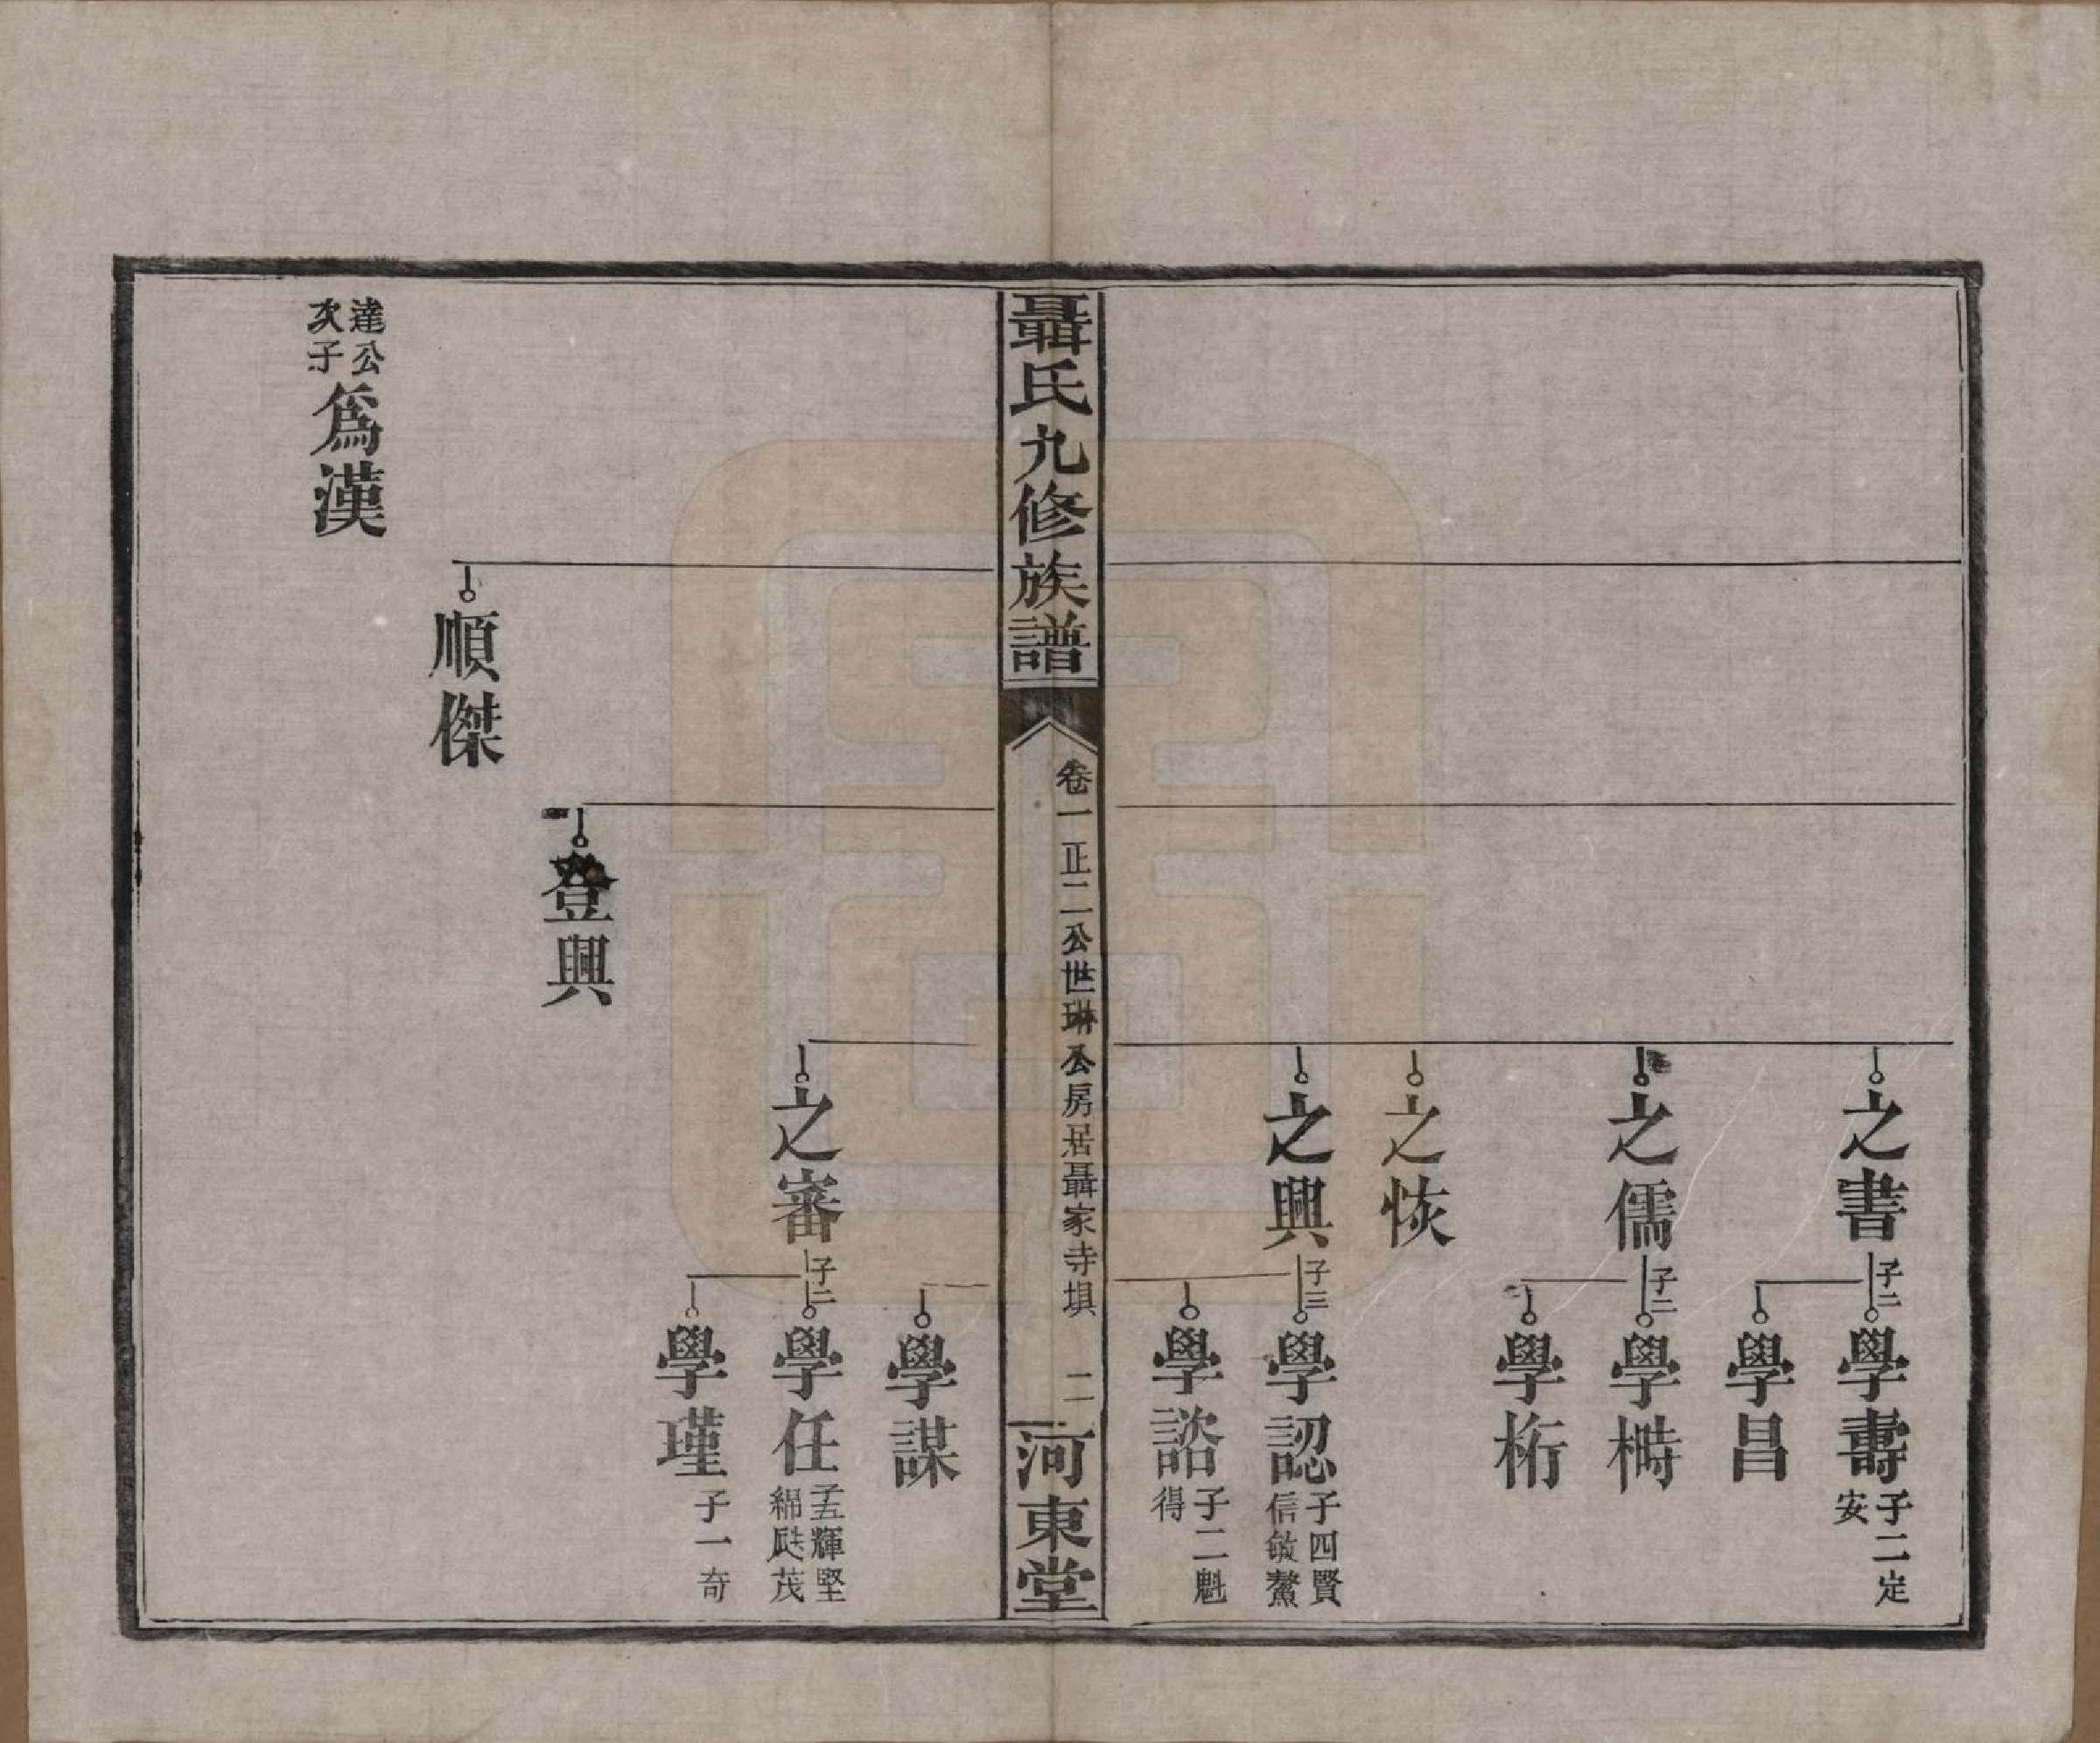 之書
子二
學壽
子二定
安
學昌
之儒
子二
學疇
學桁
之恢
之興
子三
學認
子四賢
信敏鰲
學諮
子二魁
得
聶氏九修族譜
卷一正二公世琳公房居聶家寺垻
二
河東堂
學謀
之審
子二
學任
子五輝堅
綿颰茂
學瑾
子一奇
登興
順傑
達公
次子
爲漢